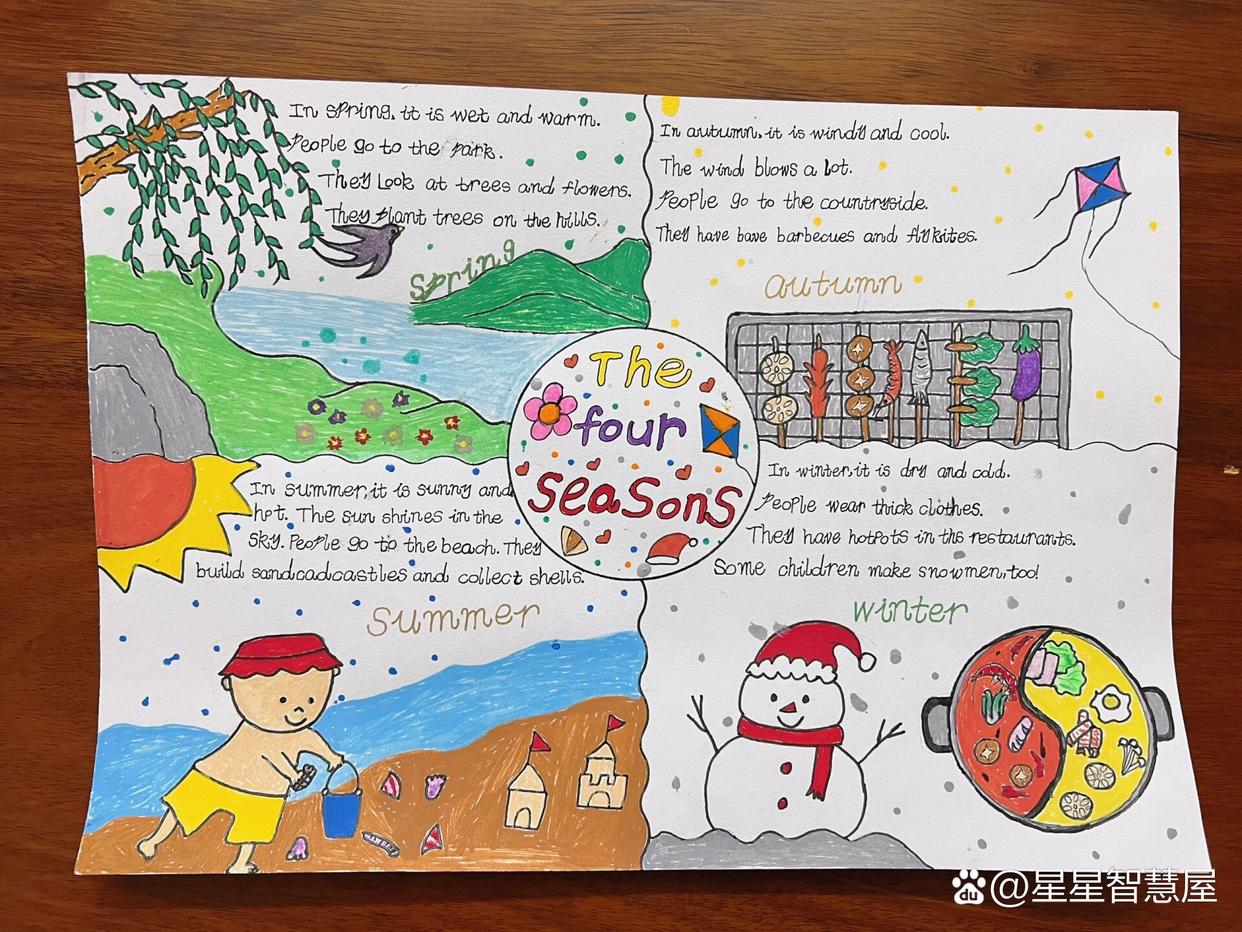 In spring, it is wet and warm.
People go to the park.
They Look at trees and flowers.
They plant trees on the hills.
Spring
In autumn, it is windy and cool.
The wind blows a lot.
People go to the countryside.
They have bave barbecues and fly kites.
autumn
The
four
seasons
In summer, it is sunny and
hot. The sun shines in the
sky. People go to the beach. They
build sandcadcastles and collect shells.
summer
In winter, it is dry and cold.
People wear thick clothes.
They have hotpots in ths restaurants.
Some children make snowmen, too!
winter
du @星星智慧屋